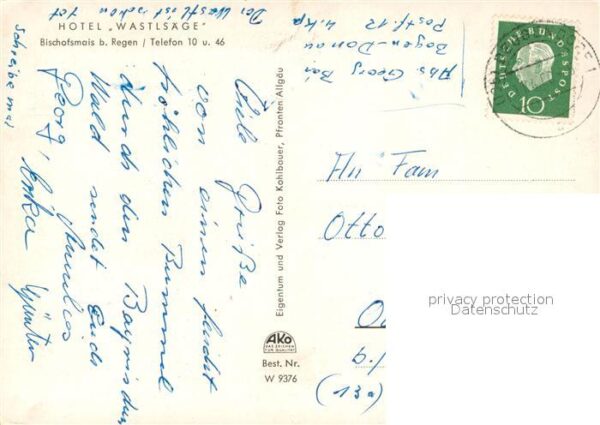 HOTEL „WASTLSÄGE"
Bischofsmais b. Regen / Telefon 10 u. 46
Schreibe mal
Der Wastl ist schön
Abs. Georg
Bogen-Donau
Postf. 12 4. Kp
Viele Grüße
von einem
fröhlichen Bummel
durch den Bayrischen
Wald sendet Euch
Georg, Erika Günter
Eigentum und Verlag Foto Kohlbauer, Pfronten Allgäu
AKO
DAS ZEICHEN
FÜR QUALITÄT
Best. Nr.
W 9376
DEUTSCHE BUNDESPOST
10
An Fam
Otto
b./
(13a)
privacy protection
Datenschutz